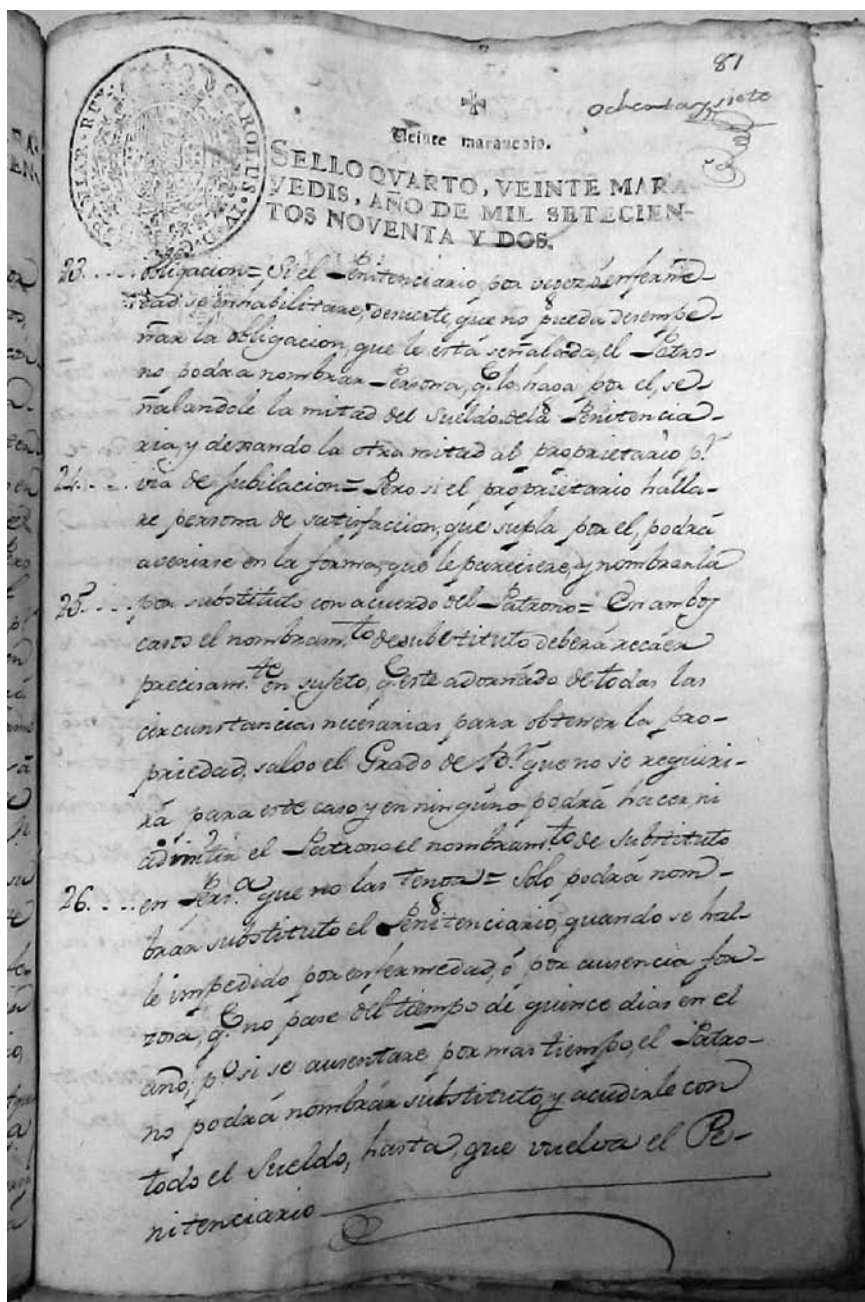 81
ochenta y siete
Veinte marauedis.
CAROLUS IV D. G. HISPANIAR. REX
SELLO QVARTO, VEINTE MARA-
VEDIS, AÑO DE MIL SETECIEN-
TOS NOVENTA Y DOS.
23.... obligacion= Si el Penitenciario, por vejez, ò enferme-
dad se inhabilitare, desuerte, que no pueda desempe-
ñar la obligacion, que le està señalada, el Patro-
no podrà nombrar Persona, q.e lo haga por el, se-
ñalandole la mitad del Sueldo dela Penitencia-
ria, y dexando la otra mitad al proprietario p.r
24.... via de Jubilacion= Pero si el proprietario halla-
re persona de satisfaccion, que supla por el, podrà
avenirse en la forma, que le pareciere, y nombrarla
25.... por substituto con acuerdo del Patrono= En ambos
casos el nombram.to de substituto deberà recaèr
precisam.te en sujeto, q.e este adornado de todas las
circunstancias necesarias para obtener la pro-
priedad, salvo el Grado de B.r que no se requiri-
rà para este caso y en ninguno podrà hacer, ni
admitir el Patrono el nombram.to de substituto
26.... en Pers.a que no las tenga= Solo podrà nom-
brar substituto el Penitenciario, quando se hal-
le impedido por enfermedad, ó por ausencia for-
zosa, q.e no pase del tiempo de quince dias en el
año; p.o si se ausentare por mas tiempo, el Patro-
no podrà nombrar substituto, y acudirle con
todo el Sueldo, hasta, que vuelva el Pe-
nitenciario